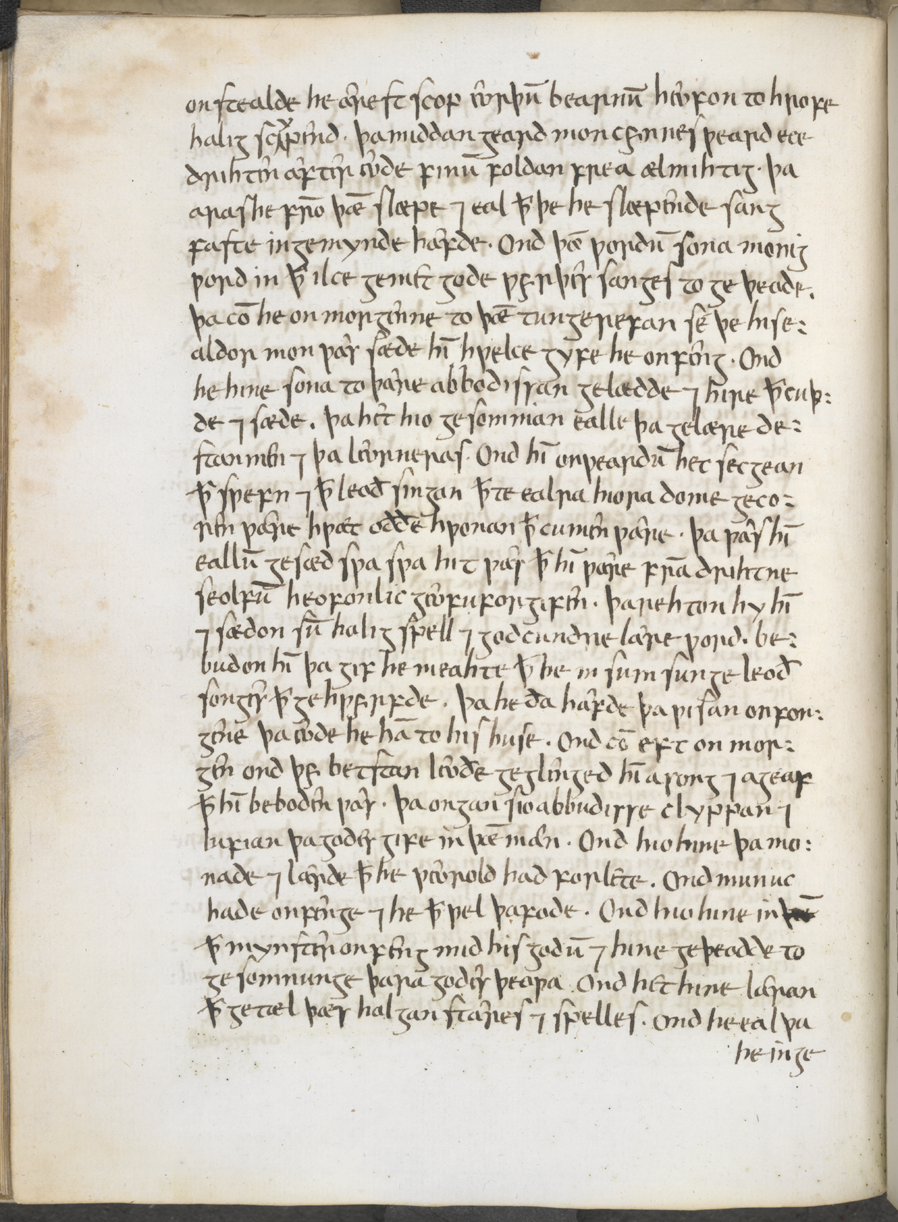 onstealde he ærest scop eorþū bearnū heofon to hrofe
halig scyppend · þa middangeard moncynnes ƿeard ece
drihten æfter eode firnū foldan frea ælmihtig · þa
aras he frō þǣ slæpe ⁊ eal ꝥ þe he slæpende sang
fæste in gemynde hæfde · Ond þǣ ƿordū sona monig
ƿord in ꝥ ilce gemet gode ƿyrþes sanges to geþeode.
þa cō he on morgenne to þǣ tungerefan sē þe his e:
aldormon ƿæs sæde hī hƿelce gyfe he onfeng · Ond
he hine sona to þære abbodissan gelædde ⁊ hire ꝥ cuþ:
de ⁊ sæde . þa het hio gesomnian ealle þa gelærede:
stan men ⁊ þa leorneras · Ond hī onƿeardū het secgean
ꝥ sƿefn ⁊ ꝥ leoð singan ꝥte ealra hiora dome geco:
ren ƿære hƿæt oððe hƿonan ꝥ cumen ƿære · þa ƿæs hī
eallū gesæd sƿa sƿa hit ƿæs ꝥ hī ƿære frā drihtne
seolfū heofonlic geofu forgifen · þa rehton hy hī
⁊ sædon sū halig spell ⁊ godcundre lære ƿord · be:
budon hī þa gif he meahte ꝥ he in sum sunge leoð
songes ꝥ gehƿyrfde · þa he ða hæfde þa ƿisan onfon:
gene þa eode he hā to his huse . Ond cō eft on mor:
gen ond þy betstan leoðe geglenged hī asong ⁊ ageaf
ꝥ hī beboden ƿæs · þa ongan sio abbudisse clyppan ⁊
lufian þa godes gife in þǣ mæn · Ond hio hine þa mo:
nade ⁊ lærde ꝥ he ƿeorold had forlete . Ond munuc
hade onfenge ⁊ he ꝥ ƿel þafode · Ond hio hine in
ꝥ mynster onfeng mid his godū ⁊ hine geþeodde to
gesomnunge þara godes þeoƿa . Ond het hine læran
ꝥ getæl þæs halgan stæres ⁊ spelles · Ond he eal þa
he inge